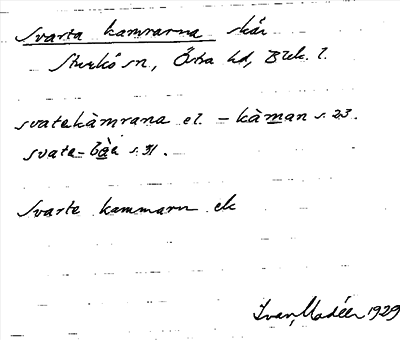 Svarta kamrarna skär
Sturkö sn, Östra hd, Blek. l.
svatekàmrana el. – kàman s. 23.
svate-bàe s. 31.
Svarte kammarn ek
Ivar Modéer 1929